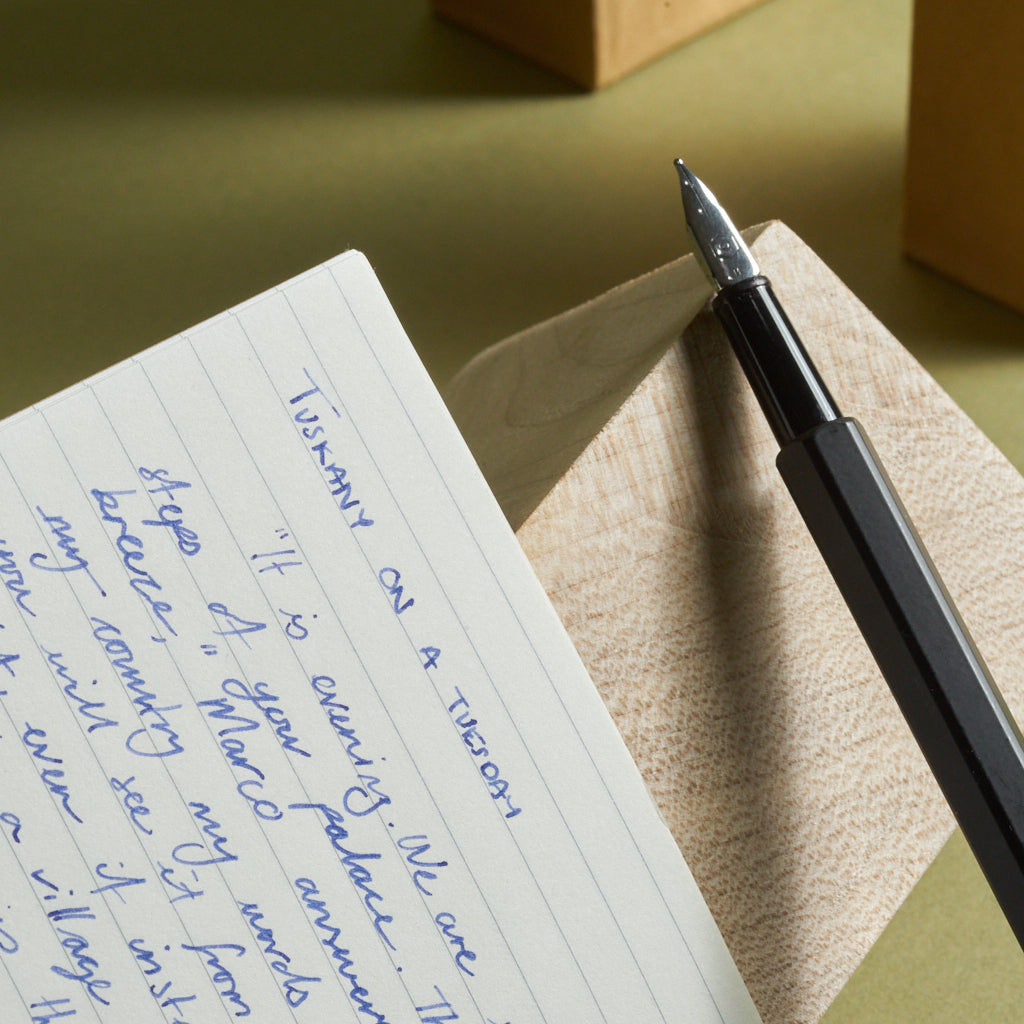 TUSKANY ON A TUESDAY
"It is evening. We are
steps of your palace. Th
breeze," Marco answer
my country my words
will see it from
even if inst
a village
is th